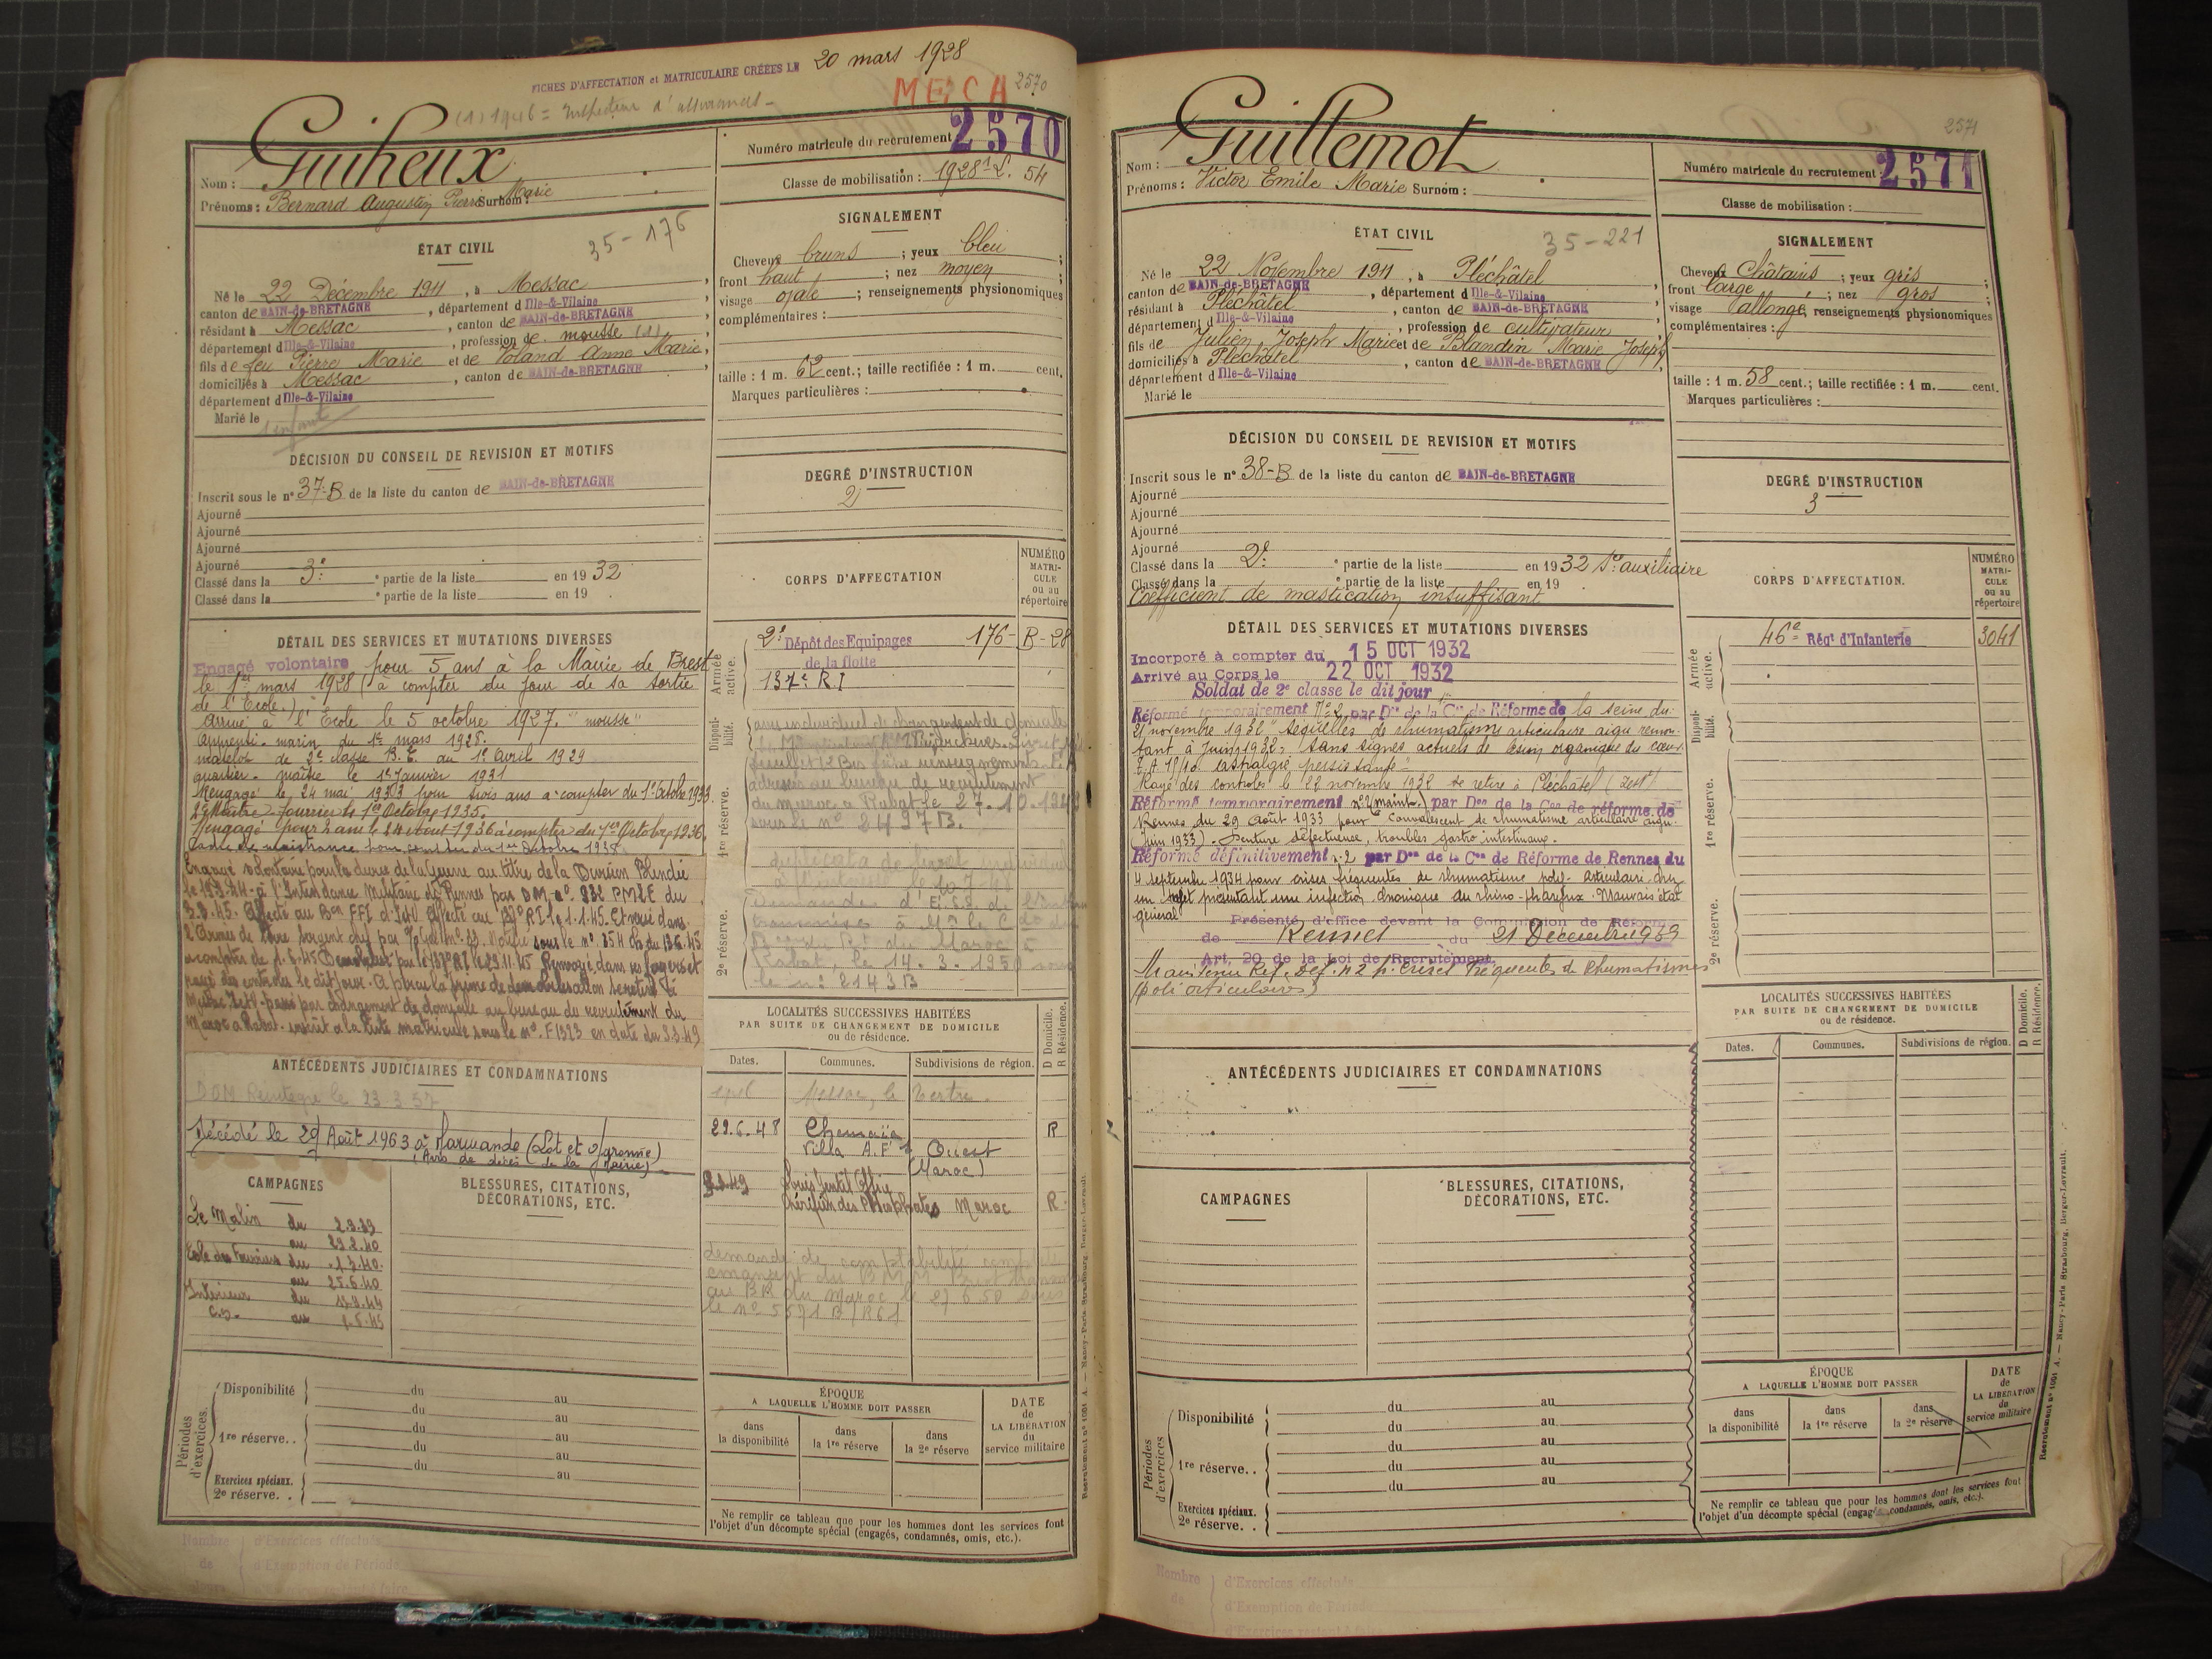 FICHES D'AFFECTATION et MATRICULAIRE CRÉÉES LE 20 mars 1928
MECA 2570
(1) 1946 = Inspecteur d'assurances -
Nom : Guiheux
Prénoms : Bernard Augustin Pierre Marie Surnom :
Numéro matricule du recrutement : 2570
Classe de mobilisation : 1928
ÉTAT CIVIL
35-176
Né le 22 Décembre 1911, à Messac,
canton de BAIN-de-BRETAGNE, département d Ille-&-Vilaine
résidant à Messac, canton de BAIN-de-BRETAGNE
département d Ille-&-Vilaine, profession de mousse (1)
fils de feu Pierre Marie et de Voland Anne Marie,
domiciliés à Messac, canton de BAIN-de-BRETAGNE
département d Ille-&-Vilaine
Marié le
1 enfant
SIGNALEMENT
Cheveux bruns ; yeux bleu ;
front haut ; nez moyen ;
visage ovale ; renseignements physionomiques
complémentaires :
taille : 1 m. 62 cent.; taille rectifiée : 1 m. cent.
Marques particulières :
DÉCISION DU CONSEIL DE REVISION ET MOTIFS
Inscrit sous le n° 37-B de la liste du canton de BAIN-de-BRETAGNE
Ajourné
Ajourné
Ajourné
Ajourné
Classé dans la 3e partie de la liste en 1932
Classé dans la e partie de la liste en 19
DEGRÉ D'INSTRUCTION
2
CORPS D'AFFECTATION
NUMÉRO MATRICULE ou au répertoire
Armée active.
2e Dépôt des Equipages 176- B-28
de la flotte
137e R I
DÉTAIL DES SERVICES ET MUTATIONS DIVERSES
Engagé volontaire pour 5 ans à la Mairie de Brest
le 1er mars 1928 (à compter du jour de sa sortie
de l'Ecole.)
Arrivé à l'Ecole le 5 octobre 1927. "mousse"
Apprenti-marin du 1er mars 1928.
matelot de 2e classe B. E. au 1er Avril 1929
quartier-maître le 1er Janvier 1931
Rengagé le 24 mai 1933 pour trois ans à compter du 1er Octobre 1933.
2d Maître Fourrier le 1er Octobre 1935.
Rengagé pour 2 ans le 24 Aout 1936 à compter du 1er Octobre 1936.
Cadre de maistrance pour compter du 1er Octobre 1938.
Engagé volontaire pour la durée de la Guerre au titre de la Division Blindée
à l'Intendance Militaire de Rennes par DM n° 932 PM2E du
3.3.45. Affecté au Bon FFI d'I et V. Affecté au 137e RI le 1.1.45. Et versé dans
l'Armée de Terre sergent chef
à compter du 1.6.45 Démobilisé par le 137e RI le 29.11.45 Renvoyé dans ses foyers et
rayé des contrôles le dit jour. A perçu la prime de démobilisation se retire à
passé par changement de domicile au bureau de recrutement du
Maroc à Rabat. inscrit à la liste matricule sous le n° F1323 en date du 3.3.49
Disponibilité.
1re réserve.
2e réserve.
avis individuel de changement de domicile
adressés au bureau de recrutement
du Maroc à Rabat le 27.10.1948
sous le n° 2437B.
duplicata de livret individuel
transmise à Mr le Cdt du
Bau du Rt du Maroc à
Rabat, le 14.3.1950 sous
le n° 2143B
ANTÉCÉDENTS JUDICIAIRES ET CONDAMNATIONS
DOM Réintégré le 23 3 57
Décédé le 29 Août 1963 à Marmande (Lot et Garonne)
(Avis de décès de la Mairie)
LOCALITÉS SUCCESSIVES HABITÉES
PAR SUITE DE CHANGEMENT DE DOMICILE
ou de résidence.
D Domicile. R Résidence.
Dates. Communes. Subdivisions de région.
1946 Messac, le Tertre.
29.6.48 Chemaïa R
Villa A.F. Ouest
(Maroc)
3.3.49 Louis Gentil Office
Chérifien des Phosphates Maroc R
au BR du Maroc le 27 6 50 sous
le n° 5571 B/R61
CAMPAGNES
Le Malin du 2.9.39
au 29.2.40
Ecole des Fourriers du 1.3.40.
au 25.6.40
Intérieur du
C.S. au
BLESSURES, CITATIONS, DÉCORATIONS, ETC.
Périodes d'exercices.
Disponibilité du au
du au
1re réserve.. du au
du au
du au
Exercices spéciaux.
2e réserve. .
ÉPOQUE
A LAQUELLE L'HOMME DOIT PASSER
dans la disponibilité
dans la 1re réserve
dans la 2e réserve
DATE de LA LIBÉRATION du service militaire
Ne remplir ce tableau que pour les hommes dont les services font
l'objet d'un décompte spécial (engagés, condamnés, omis, etc.).
Nombre d'Exercices effectués
de d'Exemption de Période
Recrutement n° 1001 A. — Nancy-Paris Strasbourg, Berger-Levrault.
2571
Nom : Guillemot
Prénoms : Victor Emile Marie Surnom :
Numéro matricule du recrutement : 2571
Classe de mobilisation :
ÉTAT CIVIL
35-221
Né le 22 Novembre 1911, à Pléchâtel
canton de BAIN-de-BRETAGNE, département d Ille-&-Vilaine
résidant à Pléchâtel, canton de BAIN-de-BRETAGNE
département d Ille-&-Vilaine, profession de cultivateur
fils de Julien Joseph Marie et de Blandin Marie Joseph,
domiciliés à Pléchâtel, canton de BAIN-de-BRETAGNE
département d Ille-&-Vilaine
Marié le
SIGNALEMENT
Cheveux Châtains ; yeux gris ;
front large ; nez gros ;
visage allongé, renseignements physionomiques
complémentaires :
taille : 1 m. 58 cent.; taille rectifiée : 1 m. cent.
Marques particulières :
DÉCISION DU CONSEIL DE REVISION ET MOTIFS
Inscrit sous le n° 38-B de la liste du canton de BAIN-de-BRETAGNE
Ajourné
Ajourné
Ajourné
Ajourné
Classé dans la 2e partie de la liste en 1932 Sce auxiliaire
Classé dans la e partie de la liste en 19
Coefficient de mastication insuffisant
DEGRÉ D'INSTRUCTION
3
CORPS D'AFFECTATION.
NUMÉRO MATRICULE ou au répertoire
Armée active.
46e Régt d'Infanterie 3041
Disponibilité.
1re réserve.
2e réserve.
DÉTAIL DES SERVICES ET MUTATIONS DIVERSES
Incorporé à compter du 15 OCT 1932
Arrivé au Corps le 22 OCT 1932
Soldat de 2e classe le dit jour
Réformé temporairement N°2 par Don de la Con de Réforme de la Seine du
21 novembre 1932 "Séquelles de rhumatisme articulaire aigu remon-
tant à Juin 1932, sans signes actuels de lésion organique du cœur.
persistante"
Rayé des contrôles le 22 novembre 1932 se retire à Pléchâtel (I et V)
Réformé temporairement n°2 (maint.) par Don de la Con de réforme de
Rennes du 29 Août 1933 pour "Convalescent de rhumatisme articulaire aigu.
(Juin 1933). Denture défectueuse, troubles gastro intestinaux.
Réformé définitivement n°2 par Don de la Con de Réforme de Rennes du
4 septembre 1934 pour crises fréquentes de rhumatisme poly-articulaire chez
un sujet présentant une infection chronique du rhino-pharynx. Mauvais état
général
Présenté d'office devant la Commission de Réforme
de Rennes du 21 Décembre 1939
Art. 20 de la Loi de Recrutement.
Maintenu Réf. Déf. n 2 p. Crises fréquentes de Rhumatismes
(poli articulaires)
ANTÉCÉDENTS JUDICIAIRES ET CONDAMNATIONS
LOCALITÉS SUCCESSIVES HABITÉES
PAR SUITE DE CHANGEMENT DE DOMICILE
ou de résidence.
D Domicile. R Résidence.
Dates. Communes. Subdivisions de région.
CAMPAGNES
BLESSURES, CITATIONS, DÉCORATIONS, ETC.
Périodes d'exercices
Disponibilité du au
du au
1re réserve.. du au
du au
du au
Exercices spéciaux.
2e réserve. .
ÉPOQUE
A LAQUELLE L'HOMME DOIT PASSER
dans la disponibilité
dans la 1re réserve
dans la 2e réserve
DATE de LA LIBÉRATION du service militaire
Ne remplir ce tableau que pour les hommes dont les services font
l'objet d'un décompte spécial (engagés, condamnés, omis, etc.).
Nombre d'Exercices effectués
de d'Exemption de Période
d'Exercices restant à faire
Recrutement n° 1001 A. — Nancy-Paris Strasbourg, Berger-Levrault.